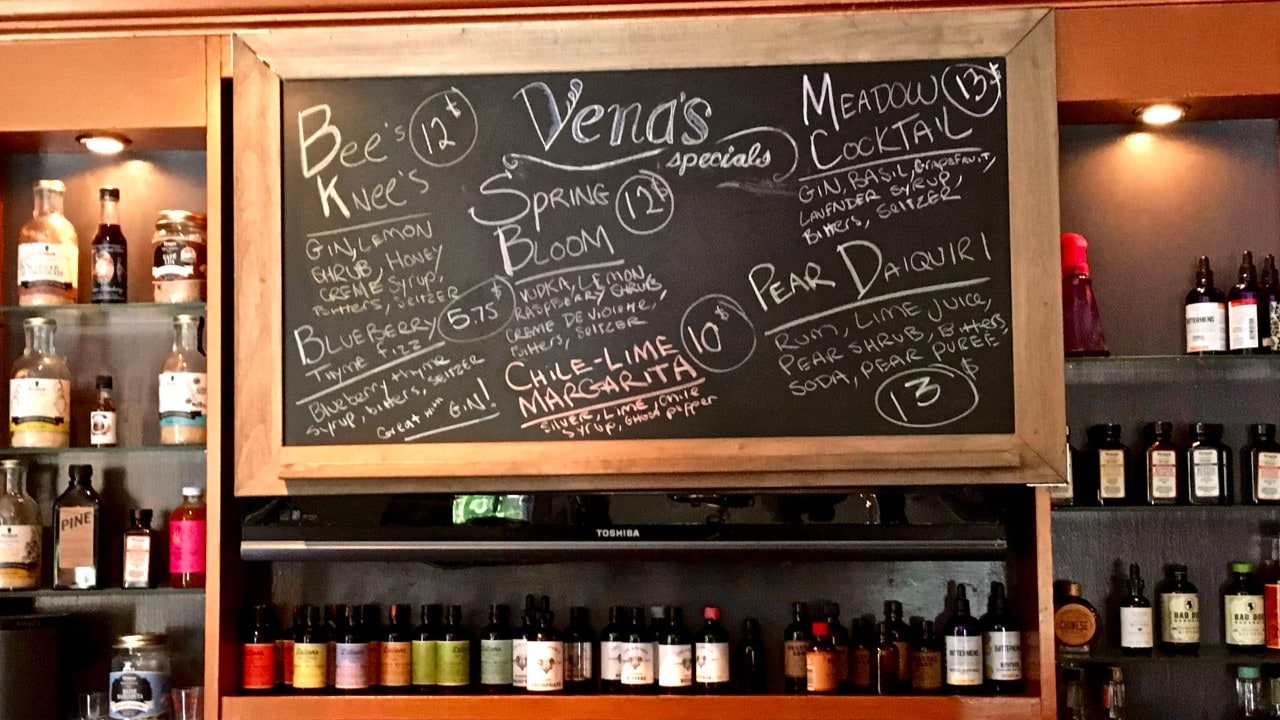 Vena's
specials
Bee's
Knee's
12$
GIN, LEMON
SHRUB, HONEY
CREME SYRUP,
Bitters, Seltzer
BLUEBERRY
Thyme Fizz
5.75$
Blueberry thyme
syrup, bitters, seltzer
Great with GIN!
SPRING
BLOOM
12$
VODKA, LEMON,
RASPBERRY SHRUB,
CREME DE VIOLETTE,
Bitters, SELTZER
CHILE-LIME
MARGARITA
10$
SILVER, LIME, Chile
syrup, Ghost pepper
MEADOW
COCKTAIL
13$
GIN, BASIL, GRAPEFRUIT,
LAVENDER SYRUP,
Bitters, SELTZER
PEAR DAIQUIRI
RUM, LIME JUICE,
PEAR SHRUB, Bitters,
SODA, PEAR PUREE
13$
TOSHIBA
PINE
BITTERMENS
BITTERMENS
BAD DOG